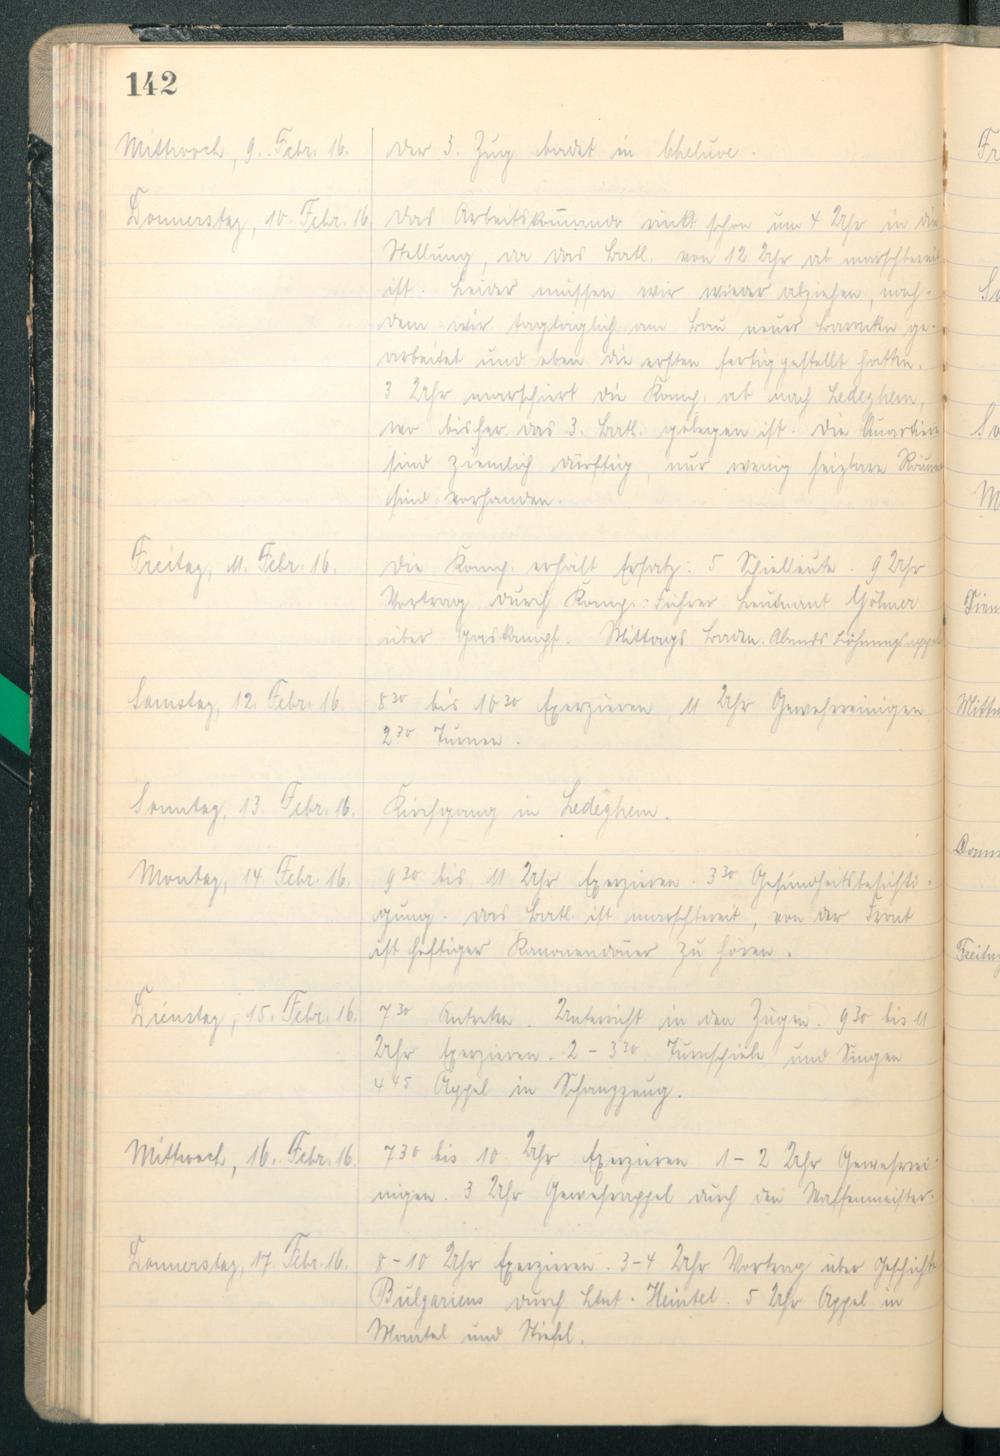 142
Mittwoch, 9. Febr. 16. Der 3. Zug badet in Gheluve.
Donnerstag, 10. Febr. 16. Das Arbeitskommando rückt schon um 4 Uhr in die
Stellung, da das Batl. von 12 Uhr ab marschbereit
ist. Leider müssen wir wieder abziehen, nach-
dem wir tagtäglich am Bau neuer Baracken ge-
arbeitet und eben die ersten fertiggestellt hatten.
3 Uhr marschiert die Komp. ab nach Ledeghem,
wo bisher das 3. Batl. gelegen ist. Die Quartiere
sind ziemlich dürftig, nur wenig heizbare Räume
sind vorhanden.
Freitag, 11. Febr. 16. Die Komp. erhält Ersatz: 5 Spielleute. 9 Uhr
Vortrag durch Komp.-Führer Leutnant
über Gaskampf. Mittags Baden. Abends Löhnungsappell
Samstag, 12. Febr. 16. 8 30 bis 10 30 Exerzieren 11 Uhr Gewehrreinigen
2 30 Turnen.
Sonntag, 13. Febr. 16. Kirchgang in Ledeghem.
Montag, 14. Febr. 16. 9 30 bis 11 Uhr Exerzieren. 3 30 Gesundheitsbesichti-
gung. Das Batl. ist marschbereit, von der Front
ist heftiger Kanonendonner zu hören.
Dienstag, 15. Febr. 16. 7 30 Antreten. Unterricht in den Zügen. 9 30 bis 11
Uhr Exerzieren. 2 - 3 30 Turnspiele und Singen
4 45 Appel in Schanzzeug.
Mittwoch, 16. Febr. 16. 7 30 bis 10 Uhr Exerzieren 1 - 2 Uhr Gewehrrei-
nigen. 3 Uhr Gewehrappel durch den Waffenmeister.
Donnerstag, 17. Febr. 16. 8 - 10 Uhr Exerzieren. 3-4 Uhr Vortrag über Geschichte
Bulgariens durch Ltnt. Heintel. 5 Uhr Appel in
Mantel und Stiefel.